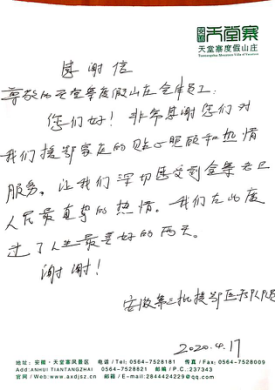 天堂寨
天堂寨度假山庄
感谢信
尊敬的天堂寨度假山庄全体员工:
您们好! 非常感谢您们对
我们援鄂家庭的贴心照顾和热情
服务。让我们深切感受到金寨老区
人民最真挚的热情。我们在此度
过了人生最美好的两天。
谢谢!
安徽第三批援鄂医疗队队员
2020.4.17
地址:安徽·天堂寨风景区 电话/Tel: 0564-7528181 传真/Fax: 0564-7528089
Add:ANHUI TIANTANGZHAI 0564-7528821 邮编/P.C.237343
官网/Web:www.axdjsz.cn 邮箱/E-Mail:2844424229@qq.com